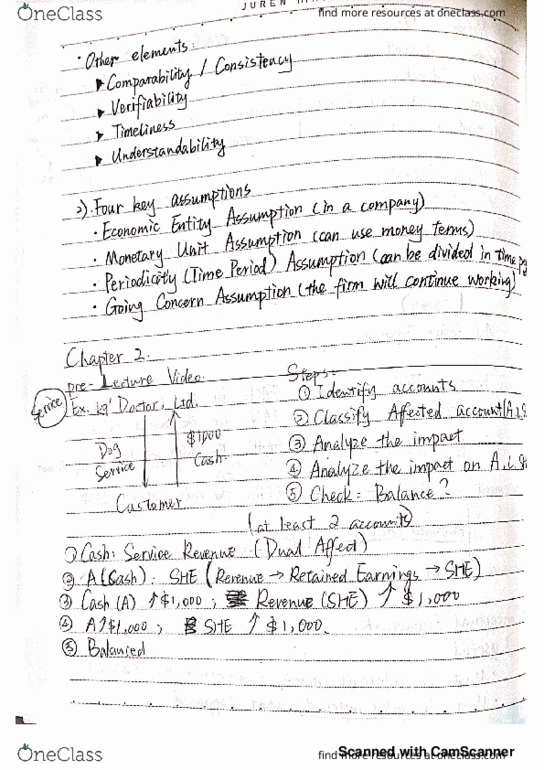 OneClass
find more resources at oneclass.com
· Other elements:
▸ Comparability / Consistency
▸ Verifiability
▸ Timeliness
▸ Understandability
2). Four key assumptions
· Economic Entity Assumption (in a company)
· Monetary Unit Assumption (can use money terms)
· Periodicity (Time Period) Assumption (can be divided in time
· Going Concern Assumption (the firm will continue working)
Chapter 2.
pre-Lecture Video.
Service
Ex. Doctor, Ltd.
Dog Service
$1,000 Cash
Customer
Steps:
① Identify accounts
② Classify Affected account
③ Analyze the impact
④ Analyze the impact on A.L.
⑤ Check: Balance?
(at least 2 accounts)
① Cash: Service Revenue (Dual Affect)
② A (Cash). SHE (Revenue → Retained Earnings → SHE)
③ Cash (A) ↑ $1,000 ; Revenue (SHE) ↑ $1,000
④ A ↑ $1,000 ; SHE ↑ $1,000.
⑤ Balanced
OneClass
find more resources at oneclass.com
Scanned with CamScanner